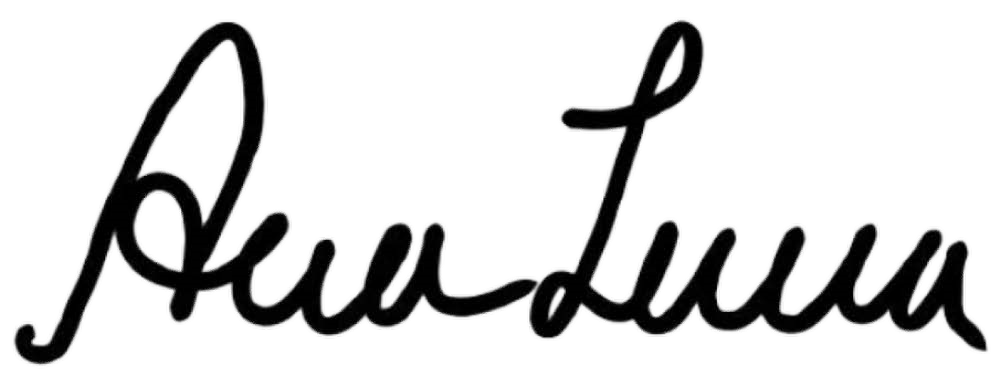 Ana Luna